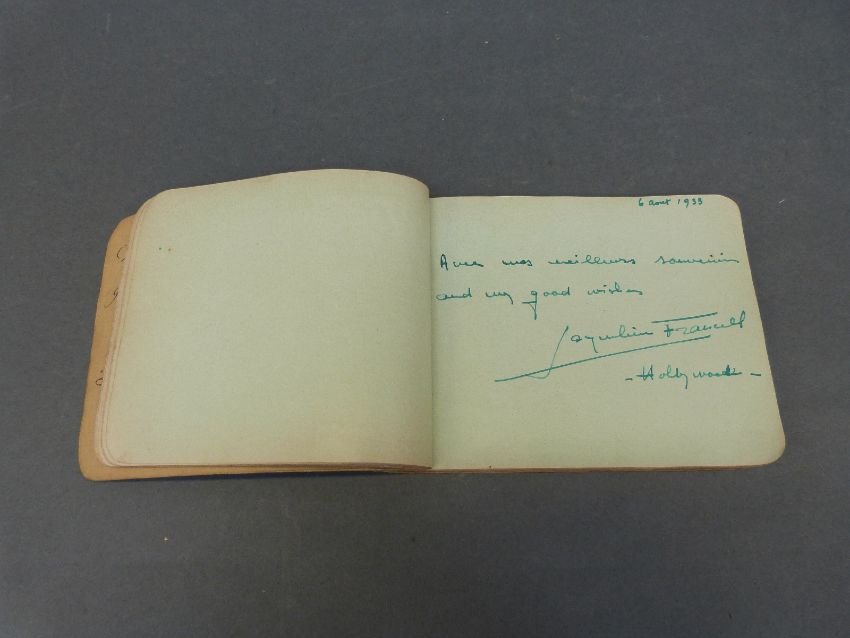 6 aout 1933
Avec mes meilleurs souvenirs
and my good wishes
Jacqueline Francell
- Hollywood -